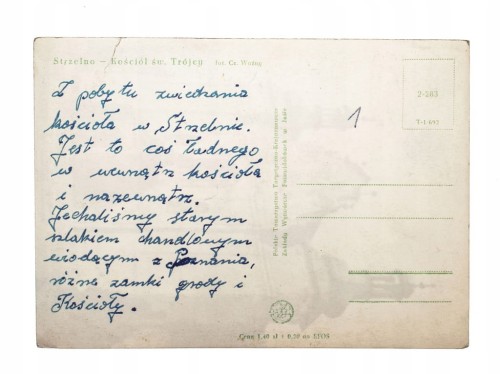 Strzelno – Kościół św. Trójcy fot. Cz. Woźny
Z pobytu zwiedzania
kościoła w Strzelnie.
Jest to coś ładnego
w wewnątrz kościoła
i nazewnątrz.
Jechaliśmy starym
szlakiem chandlowym
wiodącym z Poznania,
różne zamki grody i
Kościoły.
1
2-283
V-1-692
Polskie Towarzystwo Turystyczno-Krajoznawcze
Zakłady Wytwórcze
Cena 1.40 zł + 0.20 na